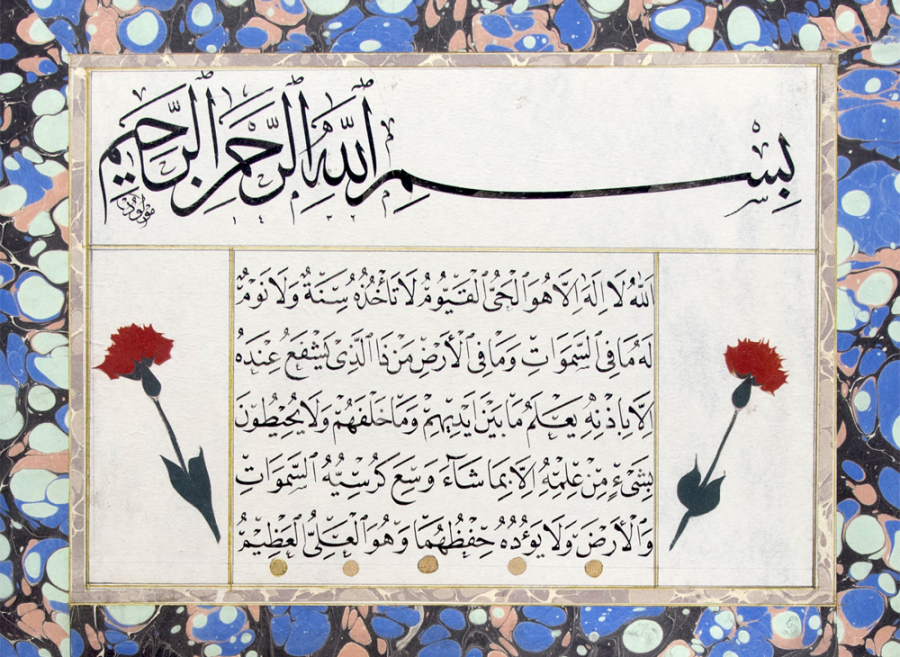 بِسْمِ ٱللَّهِ ٱلرَّحْمٰنِ ٱلرَّحِيمِ
١٤٣٢
ٱللَّهُ لَا إِلٰهَ إِلَّا هُوَ ٱلْحَىُّ ٱلْقَيُّومُ لَا تَأْخُذُهُ سِنَةٌ وَلَا نَوْمٌ
لَهُ مَا فِى ٱلسَّمٰوَاتِ وَمَا فِى ٱلْأَرْضِ مَنْ ذَا ٱلَّذِى يَشْفَعُ عِنْدَهُ
إِلَّا بِإِذْنِهِ يَعْلَمُ مَا بَيْنَ أَيْدِيهِمْ وَمَا خَلْفَهُمْ وَلَا يُحِيطُونَ
بِشَىْءٍ مِنْ عِلْمِهِ إِلَّا بِمَا شَآءَ وَسِعَ كُرْسِيُّهُ ٱلسَّمٰوَاتِ
وَٱلْأَرْضَ وَلَا يَؤُدُهُ حِفْظُهُمَا وَهُوَ ٱلْعَلِىُّ ٱلْعَظِيمُ